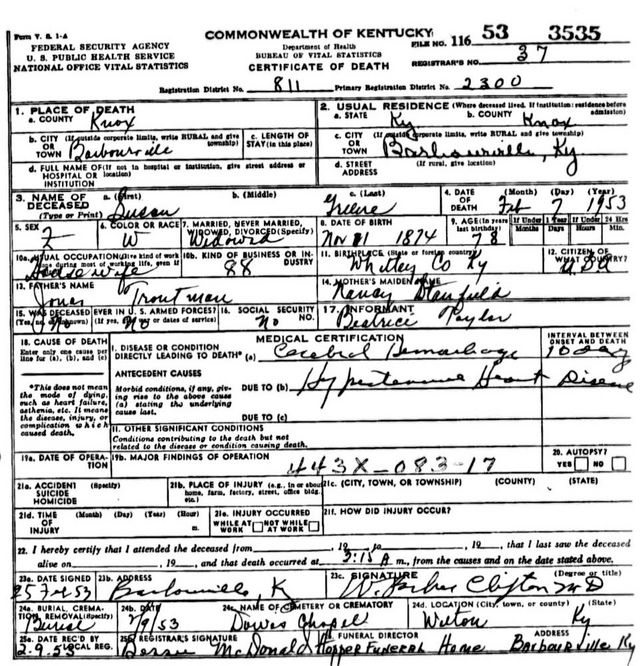 Form V. S. 1-A
COMMONWEALTH OF KENTUCKY
FILE NO. 116 53 3535
FEDERAL SECURITY AGENCY
U. S. PUBLIC HEALTH SERVICE
NATIONAL OFFICE VITAL STATISTICS
Department of Health
BUREAU OF VITAL STATISTICS
CERTIFICATE OF DEATH
REGISTRAR'S NO. 37
Registration District No. 811 Primary Registration District No. 2300
1. PLACE OF DEATH
a. COUNTY Knox
2. USUAL RESIDENCE (Where deceased lived. If institution: residence before admission)
a. STATE Ky b. COUNTY Knox
b. CITY (If outside corporate limits, write RURAL and give township)
OR TOWN Barbourville
c. LENGTH OF STAY (in this place)
c. CITY (If outside corporate limits, write RURAL and give township)
OR TOWN Barbourville, Ky
d. FULL NAME OF (If not in hospital or institution, give street address or location)
HOSPITAL OR INSTITUTION
d. STREET ADDRESS (If rural, give location)
3. NAME OF DECEASED (Type or Print) a. (First) Susan b. (Middle) c. (Last) Greene
4. DATE OF DEATH (Month) (Day) (Year) Feb 7 1953
5. SEX F
6. COLOR OR RACE W
7. MARRIED, NEVER MARRIED, WIDOWED, DIVORCED (Specify) Widowed
8. DATE OF BIRTH Nov 11 1874
9. AGE (In years last birthday) 78 If Under 1 Year Months Days If Under 24 Hrs Hours Min.
10a. USUAL OCCUPATION (Give kind of work done during most of working life, even if retired) Housewife
10b. KIND OF BUSINESS OR INDUSTRY 88
11. BIRTHPLACE (State or foreign country) Whitley Co Ky
12. CITIZEN OF WHAT COUNTRY? USA
13. FATHER'S NAME Jones Troutman
14. MOTHER'S MAIDEN NAME Nancy Stanfield
15. WAS DECEASED EVER IN U. S. ARMED FORCES? (Yes, no, or unknown) (If yes, give war or dates of service) No No
16. SOCIAL SECURITY NO. No
17. INFORMANT Beatrice Taylor
18. CAUSE OF DEATH
Enter only one cause per line for (a), (b), and (c)
MEDICAL CERTIFICATION
INTERVAL BETWEEN ONSET AND DEATH
I. DISEASE OR CONDITION DIRECTLY LEADING TO DEATH* (a) Cerebral Hemorrhage 10 day
*This does not mean the mode of dying, such as heart failure, asthenia, etc. It means the disease, injury, or complication which caused death.
ANTECEDENT CAUSES
Morbid conditions, if any, giving rise to the above cause (a) stating the underlying cause last.
DUE TO (b) Hypertensive Heart Disease
DUE TO (c)
II. OTHER SIGNIFICANT CONDITIONS
Conditions contributing to the death but not related to the disease or condition causing death.
19a. DATE OF OPERATION
19b. MAJOR FINDINGS OF OPERATION
443X-083-17
20. AUTOPSY? YES NO
21a. ACCIDENT SUICIDE HOMICIDE (Specify)
21b. PLACE OF INJURY (e.g., in or about home, farm, factory, street, office bldg. etc.)
21c. (CITY, TOWN, OR TOWNSHIP) (COUNTY) (STATE)
21d. TIME OF INJURY (Month) (Day) (Year) (Hour) m.
21e. INJURY OCCURRED WHILE AT WORK NOT WHILE AT WORK
21f. HOW DID INJURY OCCUR?
22. I hereby certify that I attended the deceased from , 19 to , 19 , that I last saw the deceased
alive on , 19 , and that death occurred at 3:15 A m., from the causes and on the date stated above.
23a. DATE SIGNED 
23b. ADDRESS Barbourville, K
23c. SIGNATURE (Degree or title) W. Parker Clifton MD
24a. BURIAL, CREMATION, REMOVAL (Specify) Burial
24b. DATE 2/9/53
24c. NAME OF CEMETERY OR CREMATORY Dowes Chapel
24d. LOCATION (City, town, or county) (State) Wilton Ky
25a. DATE REC'D BY LOCAL REG. 2.9.53
25b. REGISTRAR'S SIGNATURE Bessie McDonald
FUNERAL DIRECTOR Hopper Funeral Home
ADDRESS Barbourville Ky